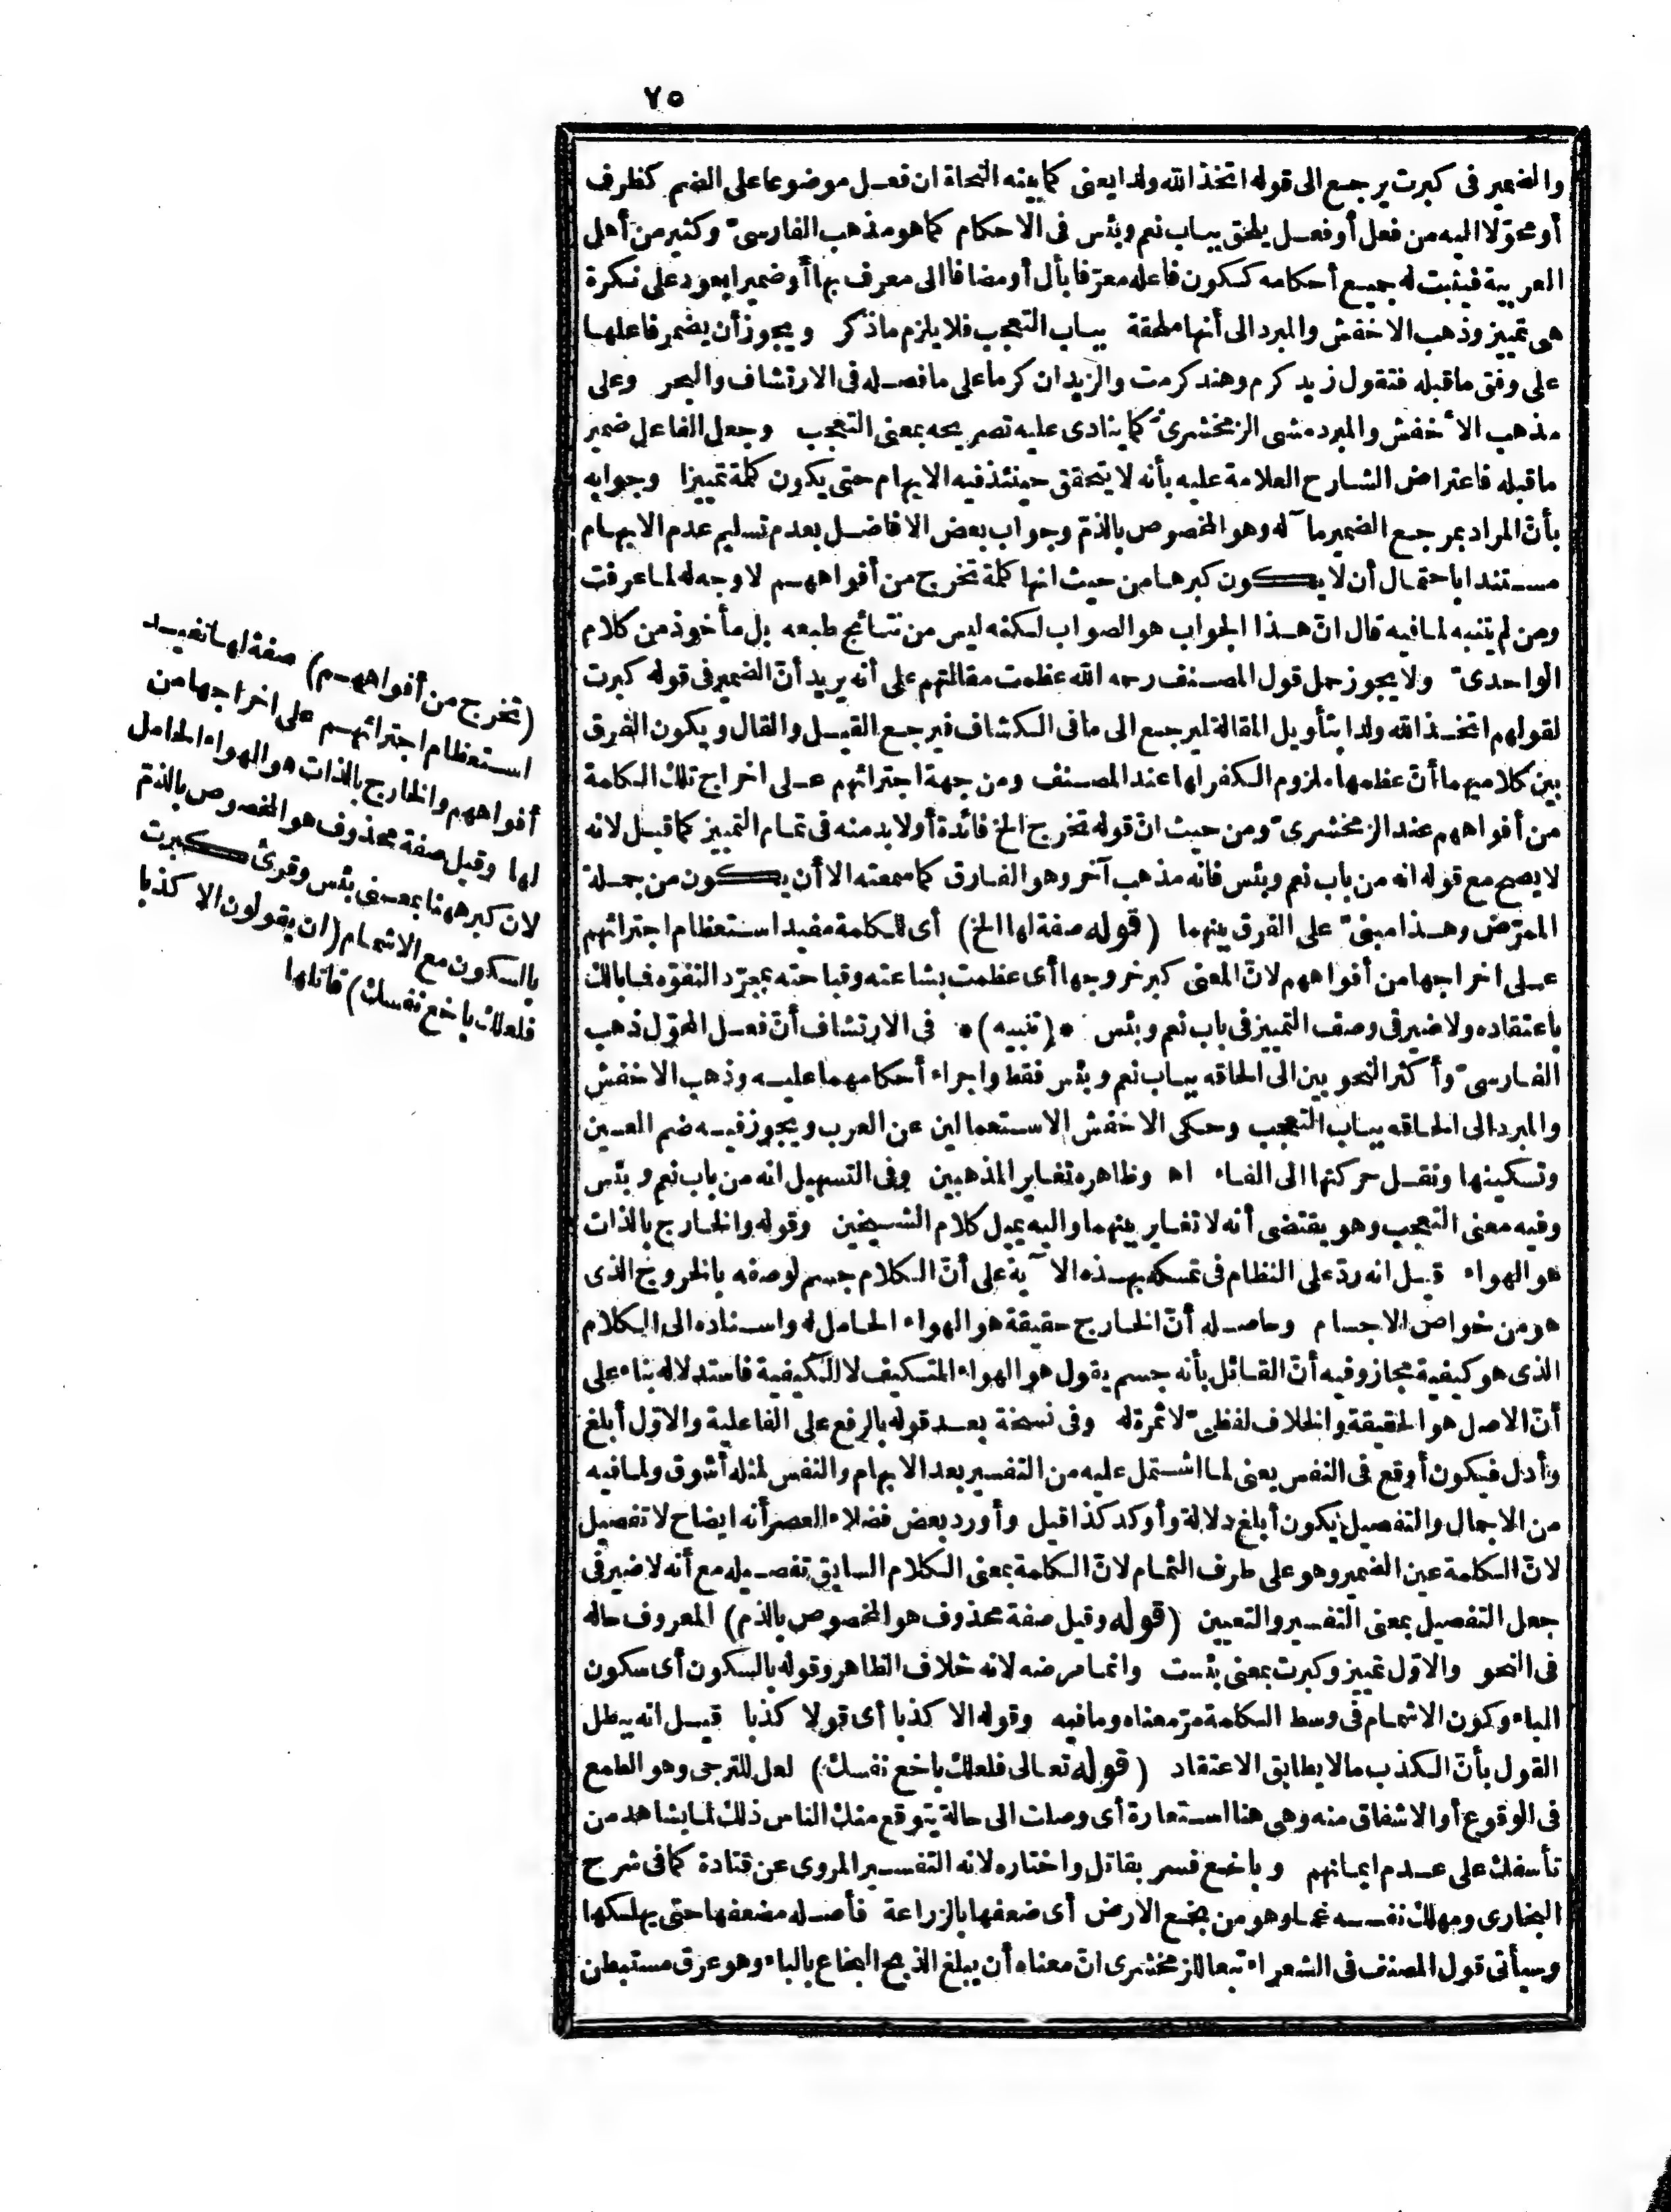 ٧٥
والضمير في كبرت يرجع الى قوله اتخذ الله ولدا يعني كما بينه النحاة ان فعل موضوعا على الضم كظرف
أو محوّلا اليه من فعل أو فعل يلحق بباب نعم وبئس في الاحكام كما هو مذهب الفارسيّ وكثير من أهل
العربية فيثبت له جميع أحكامه ككون فاعله معرّفا بأل أو مضافا الى معرف بها أو ضميرا يعود على نكرة
هي تمييز وذهب الاخفش والمبرد الى أنها ملحقة بباب التعجب فلا يلزم ما ذكر ويجوز أن يضمر فاعلها
على وفق ما قبله فتقول زيد كرم وهند كرمت والزيدان كرما على ما فصله في الارتشاف والبحر وعلى
مذهب الأخفش والمبرد مشى الزمخشريّ كما ينادي عليه تصريحه بمعنى التعجب وجعل الفاعل ضمير
ما قبله فاعتراض الشارح العلامة عليه بأنه لا يتحقق حينئذ فيه الابهام حتى يكون كلمة تمييزا وجوابه
بأنّ المراد بمرجع الضمير مآله وهو المخصوص بالذمّ وجواب بعض الافاضل بعدم تسليم عدم الابهام
مستندا باحتمال أن لا يكون كبرها من حيث انها كلمة تخرج من أفواههم لا وجه له لما عرفت
ومن لم يتنبه لما فيه قال انّ هذا الجواب هو الصواب لكنه ليس من نتائج طبعه بل مأخوذ من كلام
الواحديّ ولا يجوز حمل قول المصنف رحمه الله عظمت مقالتهم على أنه يريد أنّ الضمير في قوله كبرت
لقولهم اتخذ الله ولدا بتأويل المقالة ليرجع الى ما في الكشاف فيرجع القيل والقال ويكون الفرق
بين كلاميهما أنّ عظمها ملزوم الكفر لها عند المصنف ومن جهة اجترائهم على اخراج تلك الكلمة
من أفواههم عند الزمخشريّ ومن حيث انّ قوله تخرج الخ فائدة أو لا بد منه في تمام التمييز كما قيل لانه
لا يصح مع قوله انه من باب نعم وبئس فانه مذهب آخر وهو الفارق كما سمعته الا أن يكون من جملة
الممرّض وهذا مبنيّ على الفرق بينهما (قوله صفة لها الخ) أي للكلمة مفيد استعظام اجترائهم
على اخراجها من أفواههم لانّ المعنى كبر خروجها أي عظمت بشاعته وقباحته بمجرّد التفوّه فما بالك
باعتقاده ولا ضير في وصف التمييز في باب نعم وبئس *(تنبيه)* في الارتشاف أنّ فعل المحوّل ذهب
الفارسيّ وأكثر النحويين الى الحاقه بباب نعم وبئس فقط واجراء أحكامهما عليه وذهب الاخفش
والمبرد الى الحاقه بباب التعجب وحكى الاخفش الاستعمالين عن العرب ويجوز فيه ضم العين
وتسكينها ونقل حركتها الى الفاء اه وظاهره تغاير المذهبين وفي التسهيل انه من باب نعم وبئس
وفيه معنى التعجب وهو يقتضي أنه لا تغاير بينهما واليه يميل كلام الشيخين وقوله والخارج بالذات
هو الهواء قيل انه ردّ على النظام في تمسكه بهذه الآية على أنّ الكلام جسم لوصفه بالخروج الذي
هو من خواص الاجسام وحاصله أنّ الخارج حقيقة هو الهواء الحامل له واسناده الى الكلام
الذي هو كيفية مجاز وفيه أنّ القائل بأنه جسم يقول هو الهواء المتكيف لا الكيفية فاستدلاله بناء على
أنّ الاصل هو الحقيقة والخلاف لفظيّ لا ثمرة له وفي نسخة بعد قوله بالرفع على الفاعلية والاوّل أبلغ
وأدل فيكون أوقع في النفس يعني لما اشتمل عليه من التفسير بعد الابهام والنفس لمثله أشوق ولما فيه
من الاجمال والتفصيل يكون أبلغ دلالة وأوكد كذا قيل وأورد بعض فضلاء العصر أنه ايضاح لا تفصيل
لانّ الكلمة عين الضمير وهو على طرف الثمام لانّ الكلمة بمعنى الكلام السابق تفصيله مع أنه لا ضير في
جعل التفصيل بمعنى التفسير والتعيين (قوله وقيل صفة محذوف هو المخصوص بالذم) المعروف حاله
في النحو والاوّل تمييز وكبرت بمعنى بئست وانما مرضه لانه خلاف الظاهر وقوله بالسكون أي سكون
الباء وكون الاشمام في وسط الكلمة مرّ معناه وما فيه وقوله الا كذبا أي قولا كذبا قيل انه يبطل
القول بأنّ الكذب ما لا يطابق الاعتقاد (قوله تعالى فلعلك باخع نفسك) لعل للترجي وهو الطمع
في الوقوع أو الاشفاق منه وهي هنا استعارة أي وصلت الى حالة يتوقع منك الناس ذلك لما يشاهد من
تأسفك على عدم ايمانهم وباخع فسر بقاتل واختاره لانه التفسير المروي عن قتادة كما في شرح
البخاري ومهلك نفسه غما وهو من بخع الارض أي ضعفها بالزراعة فأصله مضعفها حتى يهلكها
وسيأتي قول المصنف في الشعراء تبعا للزمخشري انّ معناه أن يبلغ الذبح البخاع بالباء وهو عرق مستبطن
(تخرج من أفواههم) صفة لها تفيد
استعظام اجترائهم على اخراجها من
أفواههم والخارج بالذات هو الهواء الحامل
لها وقيل صفة محذوف هو المخصوص بالذمّ
لان كبر ههنا بمعنى بئس وقرئ كبرت
بالسكون مع الاشمام (ان يقولون الا كذبا
فلعلك باخع نفسك) قاتلها